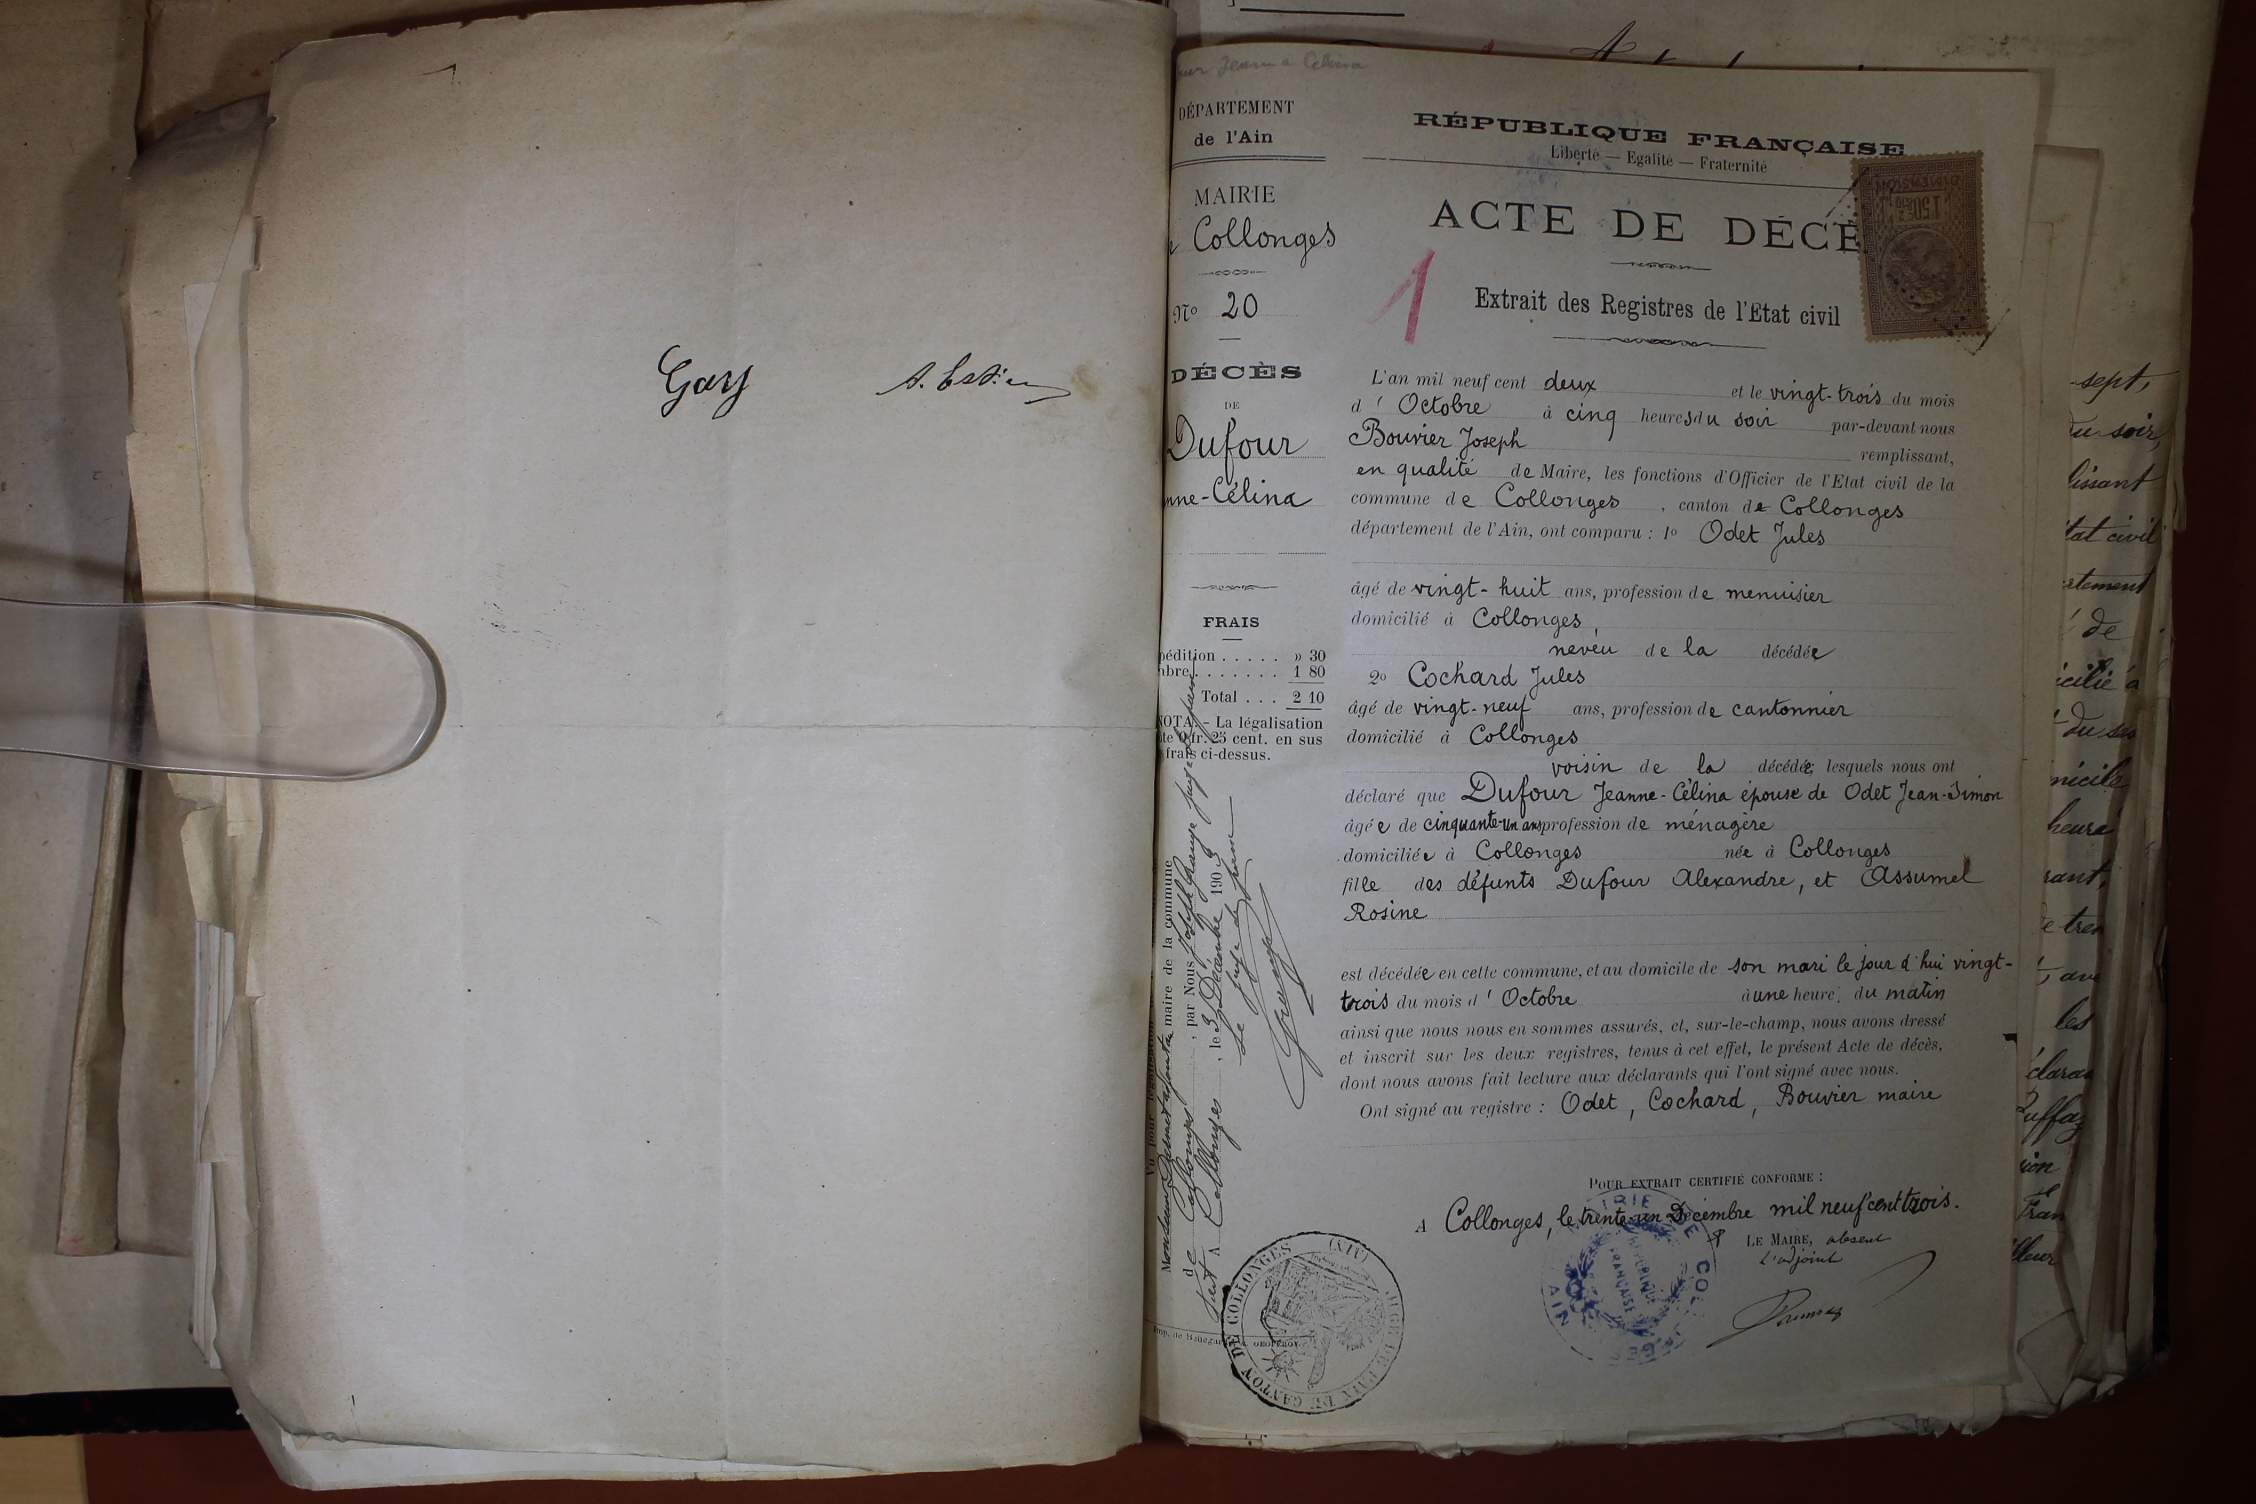 Gay
ur Jeanne Célina
DÉPARTEMENT
de l'Ain
MAIRIE
e Collonges
No 20
DÉCÈS
DE
Dufour
nne-Célina
FRAIS
pédition . . . . . » 30
mbre . . . . . . . 1 80
Total . . . 2 10
NOTA. - La légalisation
ûte 0 fr. 25 cent. en sus
frais ci-dessus.
maire de la commune
de Collonges, par Nous Joseph Grange juge de paix
Suet A Collonges, le 3 Décembre 1903
Le juge de paix
Grange
RÉPUBLIQUE FRANÇAISE
Liberté — Egalité — Fraternité
ACTE DE DÉCÈ
1
Extrait des Registres de l'Etat civil
L'an mil neuf cent deux et le vingt-trois du mois
d' Octobre à cinq heures du soir par-devant nous
Bouvier Joseph remplissant,
en qualité de Maire, les fonctions d'Officier de l'Etat civil de la
commune de Collonges, canton de Collonges
département de l'Ain, ont comparu : 1o Odet Jules
âgé de vingt-huit ans, profession de menuisier
domicilié à Collonges,
neveu de la décédée
2o Cochard Jules
âgé de vingt-neuf ans, profession de cantonnier
domicilié à Collonges
voisin de la décédée; lesquels nous ont
déclaré que Dufour Jeanne-Célina épouse de Odet Jean-Simon
âgée de cinquante-un ans profession de ménagère
domiciliée à Collonges née à Collonges
fille des défunts Dufour Alexandre, et Assumel
Rosine
est décédée en cette commune, et au domicile de son mari le jour d'hui vingt-
trois du mois d' Octobre à une heure du matin
ainsi que nous nous en sommes assurés, et, sur-le-champ, nous avons dressé
et inscrit sur les deux registres, tenus à cet effet, le présent Acte de décès,
dont nous avons fait lecture aux déclarants qui l'ont signé avec nous.
Ont signé au registre : Odet, Cochard, Bouvier maire
POUR EXTRAIT CERTIFIÉ CONFORME :
A Collonges, le trente-un Décembre mil neuf cent trois.
LE MAIRE, absent
L'adjoint
IRIE DE COL
RÉPUBLIQUE
FRANÇAISE
AIN
JUGE DE PAIX DU CANTON DE COLLONGES (AIN)
sept,
u soir,
lissant
tat civil
rtement
de
icilié à
du ses
nicile
heure
rant,
e tren
les
claran
ion
Fran